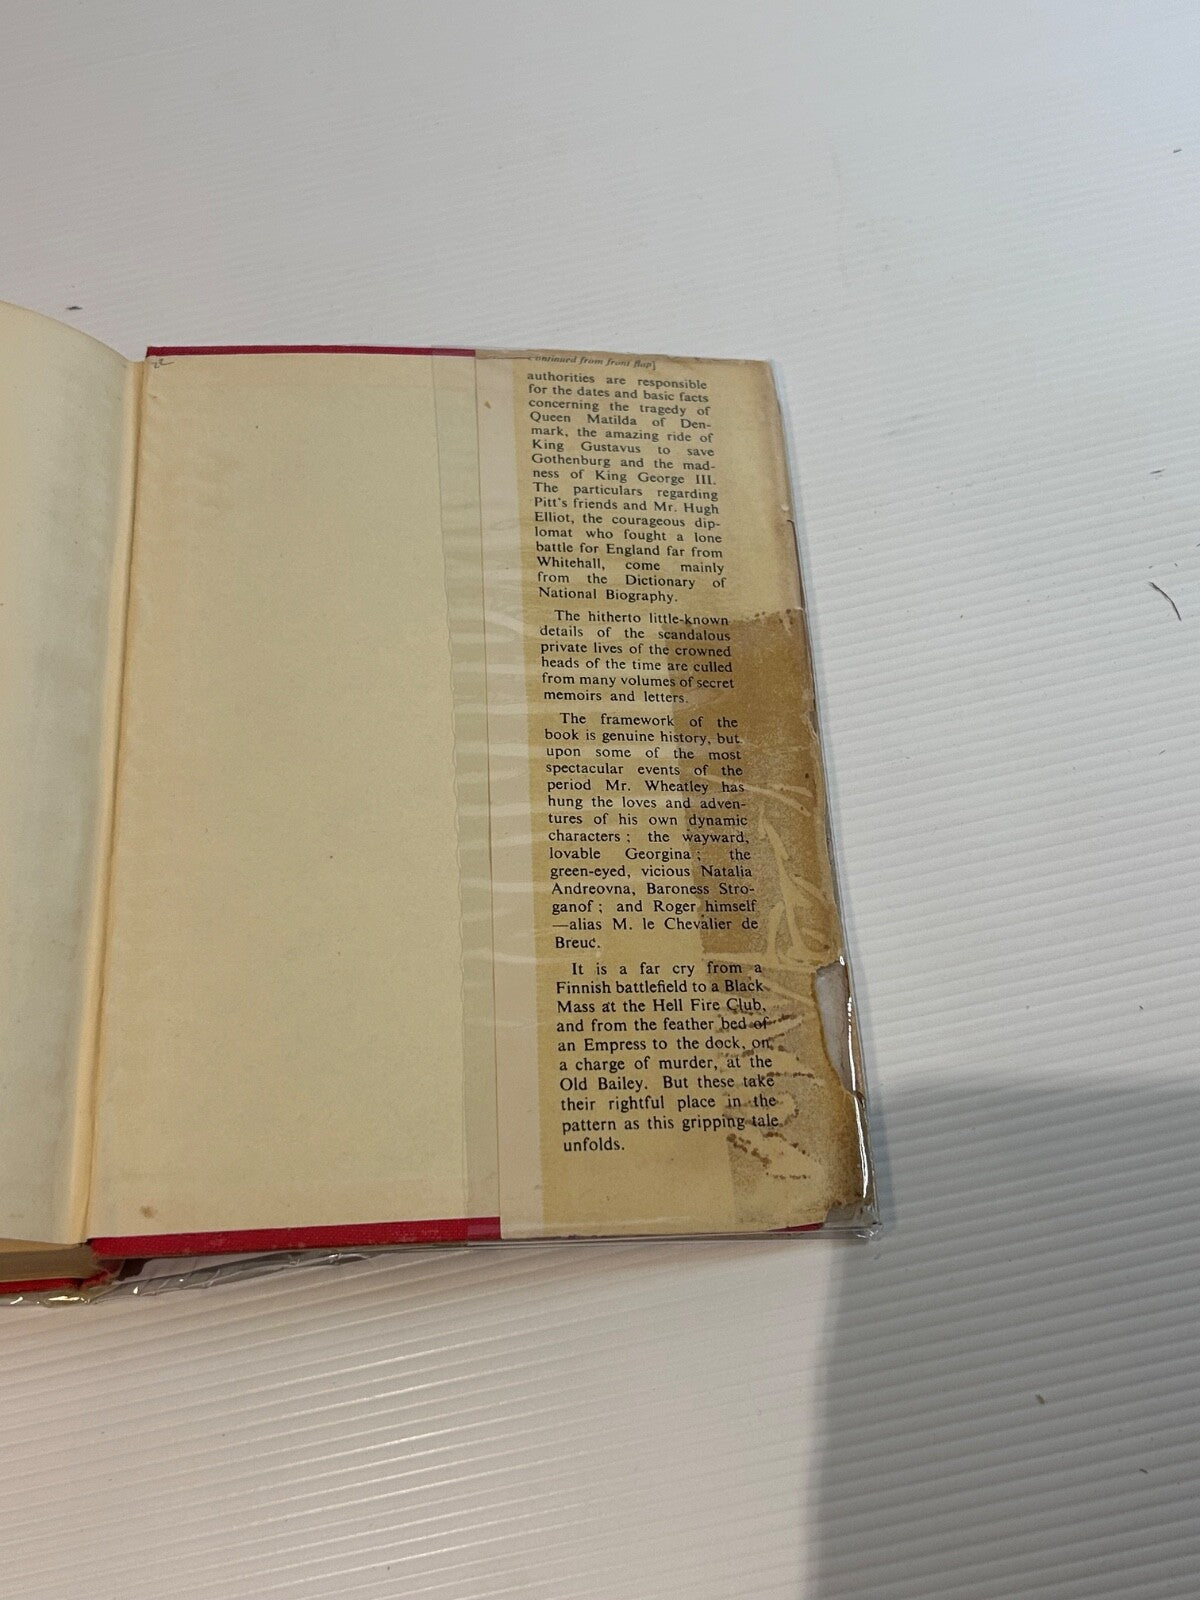 Continued from front flap]
authorities are responsible
for the dates and basic facts
concerning the tragedy of
Queen Matilda of Den-
mark, the amazing ride of
King Gustavus to save
Gothenburg and the mad-
ness of King George III.
The particulars regarding
Pitt's friends and Mr. Hugh
Elliot, the courageous dip-
lomat who fought a lone
battle for England far from
Whitehall, come mainly
from the Dictionary of
National Biography.
The hitherto little-known
details of the scandalous
private lives of the crowned
heads of the time are culled
from many volumes of secret
memoirs and letters.
The framework of the
book is genuine history, but
upon some of the most
spectacular events of the
period Mr. Wheatley has
hung the loves and adven-
tures of his own dynamic
characters ; the wayward,
lovable Georgina ; the
green-eyed, vicious Natalia
Andreovna, Baroness Stro-
ganof ; and Roger himself
—alias M. le Chevalier de
Breuc.
It is a far cry from a
Finnish battlefield to a Black
Mass at the Hell Fire Club,
and from the feather bed of
an Empress to the dock, on
a charge of murder, at the
Old Bailey. But these take
their rightful place in the
pattern as this gripping tale
unfolds.